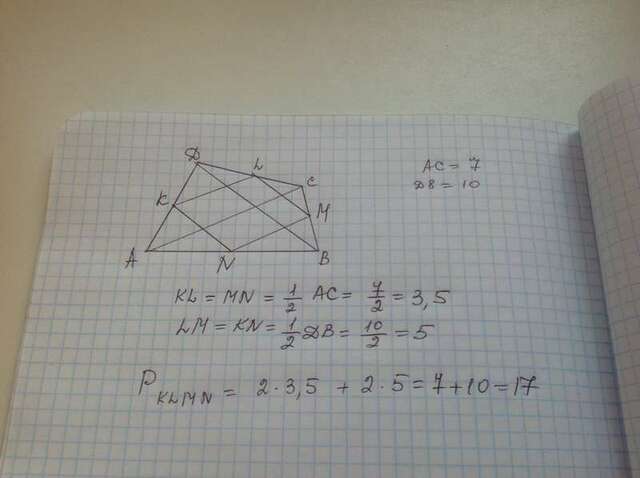 AC = 7
DB = 10
D
L
C
K
M
A
N
B
KL = MN = 1/2 AC = 7/2 = 3,5
LM = KN = 1/2 DB = 10/2 = 5
P KLMN = 2·3,5 + 2·5 = 7+10=17